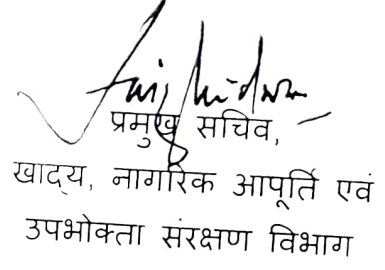 प्रमुख सचिव,
खाद्य, नागरिक आपूर्ति एवं
उपभोक्ता संरक्षण विभाग